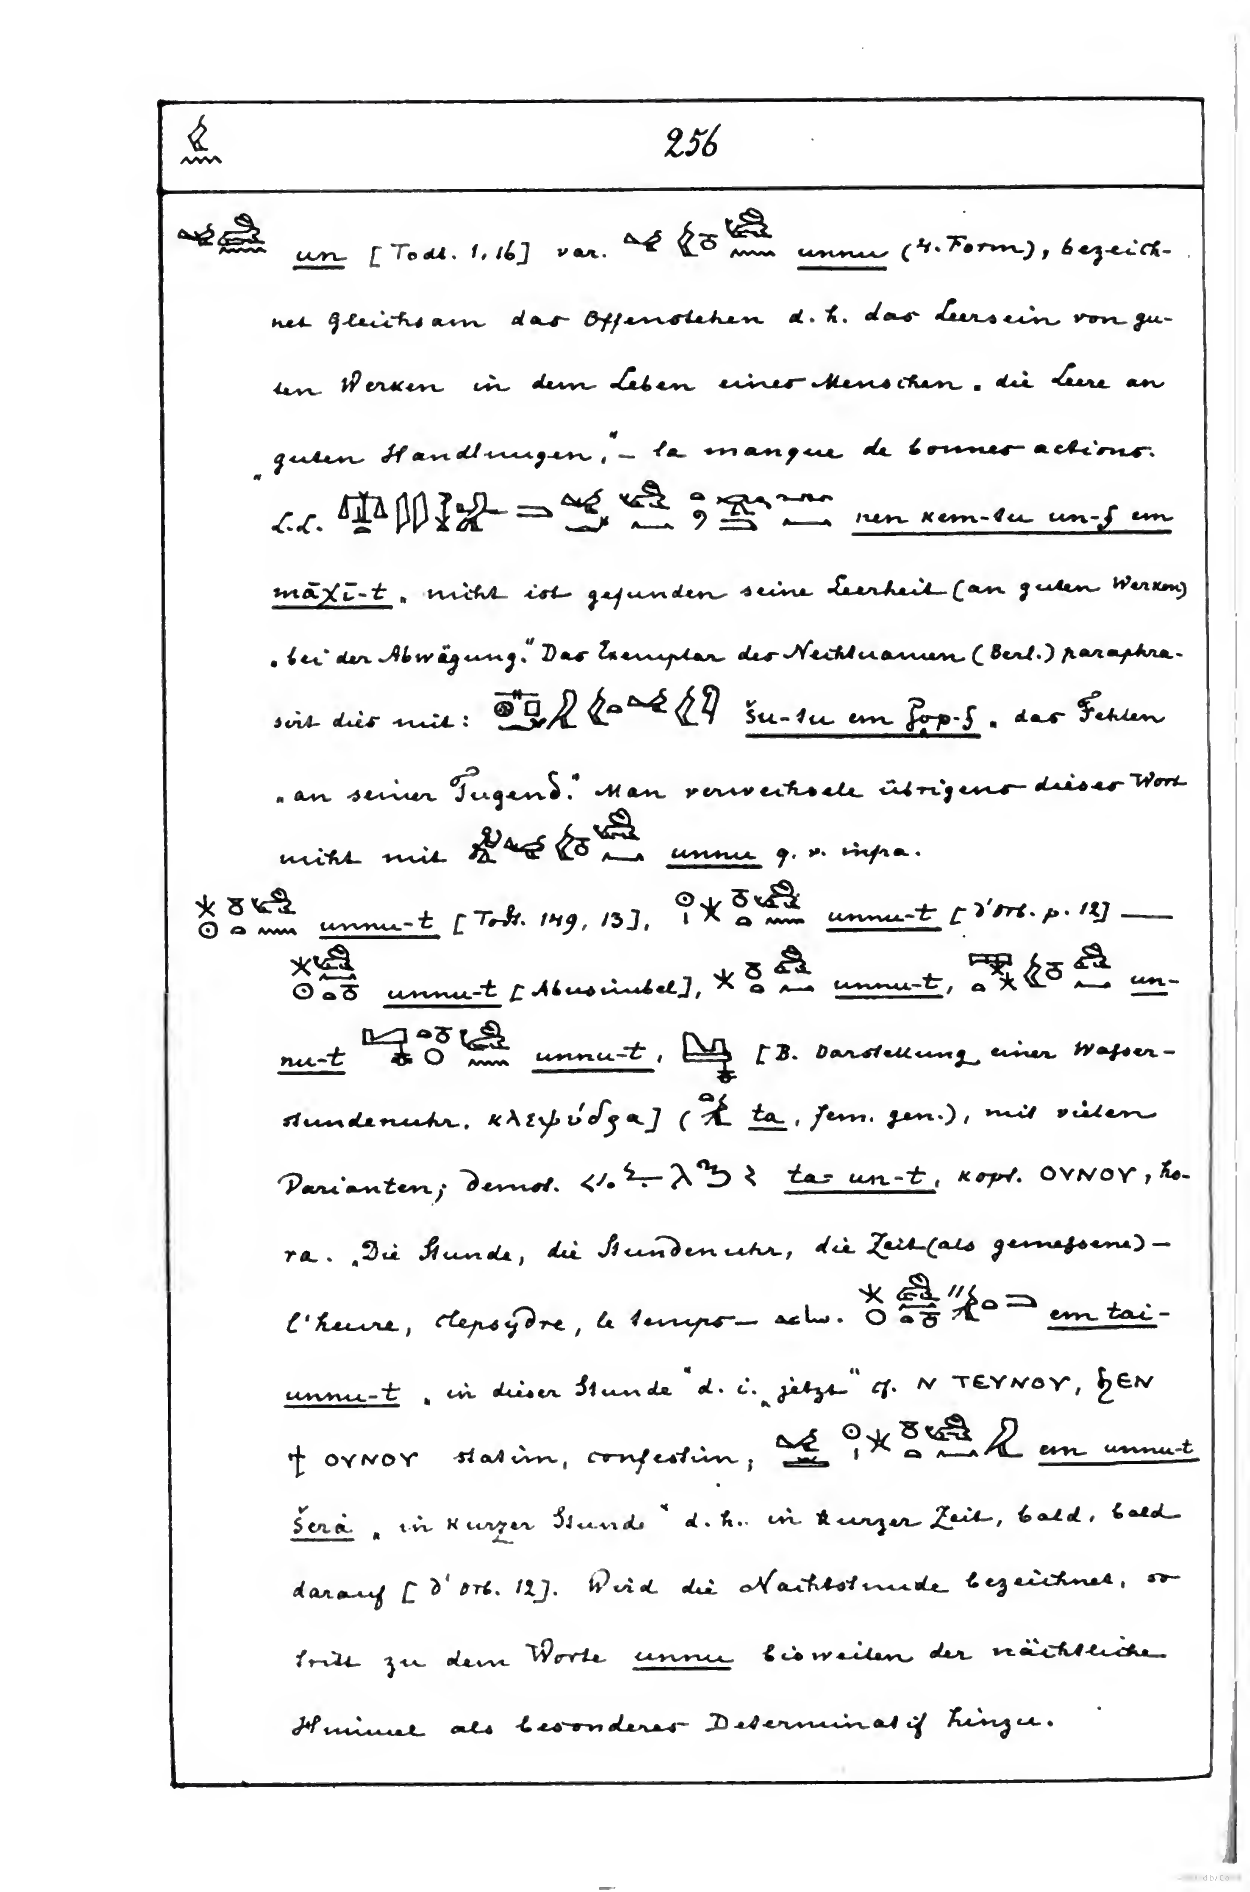 256
un [Todt. 1, 16] var. unnu (4. Form), bezeich-
net gleichsam das Offenstehen d. h. das Leersein von gu-
ten Werken in dem Leben eines Menschen „die Leere an
„guten Handlungen," – la manque de bonnes actions.
L.L. nen kem-tu un-f em
māχī-t „nicht ist gefunden seine Leerheit (an guten Werken)
„bei der Abwägung." Das Exemplar des Nechtuamen (Berl.) paraphra-
sirt dies mit: šu-tu em „das Fehlen
„an seiner Tugend." Man verwechsele übrigens dieses Wort
nicht mit unnu q. v. infra.
unnu-t [Todt. 149, 13], unnu-t [d'Orb. p. 12] —
unnu-t [Abusimbel], unnu-t, un-
nu-t unnu-t, [B. Darstellung einer Wasser-
stundenuhr, κλεψύδρα] ( ta, fem. gen.), mit vielen
Varianten; demot. ta- un-t, kopt. ΟΥΝΟΥ, ho-
ra. „Die Stunde, die Stundenuhr, die Zeit (als gemessene) –
l'heure, clepsydre, le temps – em tai-
unnu-t „in dieser Stunde" d. i. „jetzt" cf. Ν ΤΕΥΝΟΥ, ϧΕΝ
ϯ ΟΥΝΟΥ statim, confestim; em unnu-t
šerȧ „in kurzer Stunde" d. h. in kurzer Zeit, bald, bald
darauf [d'Orb. 12]. Wird die Nachtstunde bezeichnet, so
tritt zu dem Worte unnu bisweilen der nächtliche
Himmel als besonderes Determinatif hinzu.